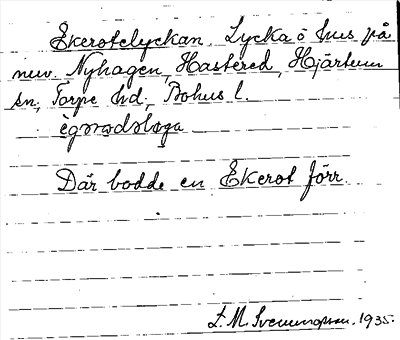 Ekerotslyckan. Lycka o hus på
nuv. Nyhagen, Hastered, Hjärtum
sn, Torpe hd, Bohus l.
Där bodde en Ekerot förr.
L. M. Svenungsson. 1935.